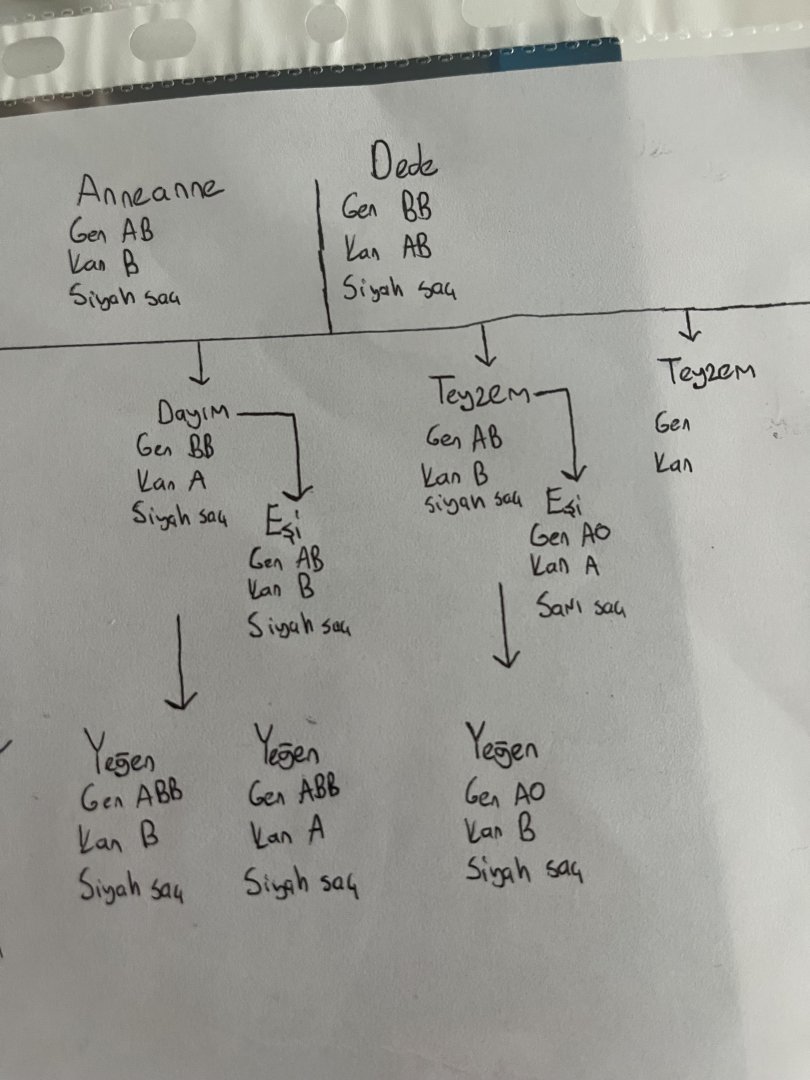 Anneanne
Gen AB
Kan B
Siyah saç
Dede
Gen BB
Kan AB
Siyah saç
Dayım
Gen BB
Kan A
Siyah saç
Eşi
Gen AB
Kan B
Siyah saç
Teyzem
Gen AB
Kan B
siyah saç
Eşi
Gen AO
Kan A
Sarı saç
Teyzem
Gen
Kan
Yeğen
Gen ABB
Kan B
Siyah saç
Yeğen
Gen ABB
Kan A
Siyah saç
Yeğen
Gen AO
Kan B
Siyah saç